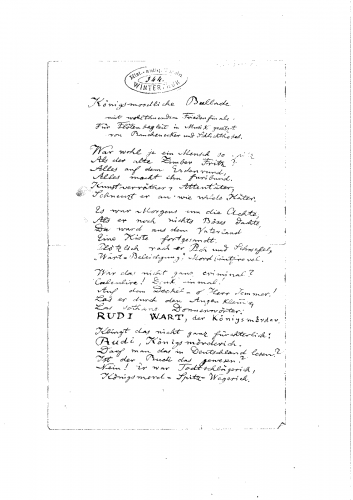 344.
WINTERTHUR
Königsmordliche Ballade
mit wohlthuendem Friedensfinale.
Für Flötenbegleit in Musik gesetzt
von
War wohl je ein Mensch so
Als der alte Fritz?
Alles auf dem Erdenrund,
Alles macht ihn furibund.
Kunstverräther, Attentäter,
Schnauzt er an wie wilde Käter.
Es war Morgens um die Achte,
Als er noch nichts Böses dachte,
Da ward aus dem Vaterland
Eine Kiste fortgesandt.
roch er Pech und Schwefel,
War das nicht ganz criminal?
Calculire! Denk einmal!
Auf dem Deckel - o Herr Jemmer!
Las er durch den Augen
Das Donnerwörter:
RUDI WART, der Königsmörder.
Klingt das nicht ganz fürchterlich:
Rudi, Königsmörderich.
Darf man das in Deutschland lesen?
Ist der Rudi das gewesen?
Nein! Er war Todtschlägerich,
Königsmord - Spitz-Wegerich.